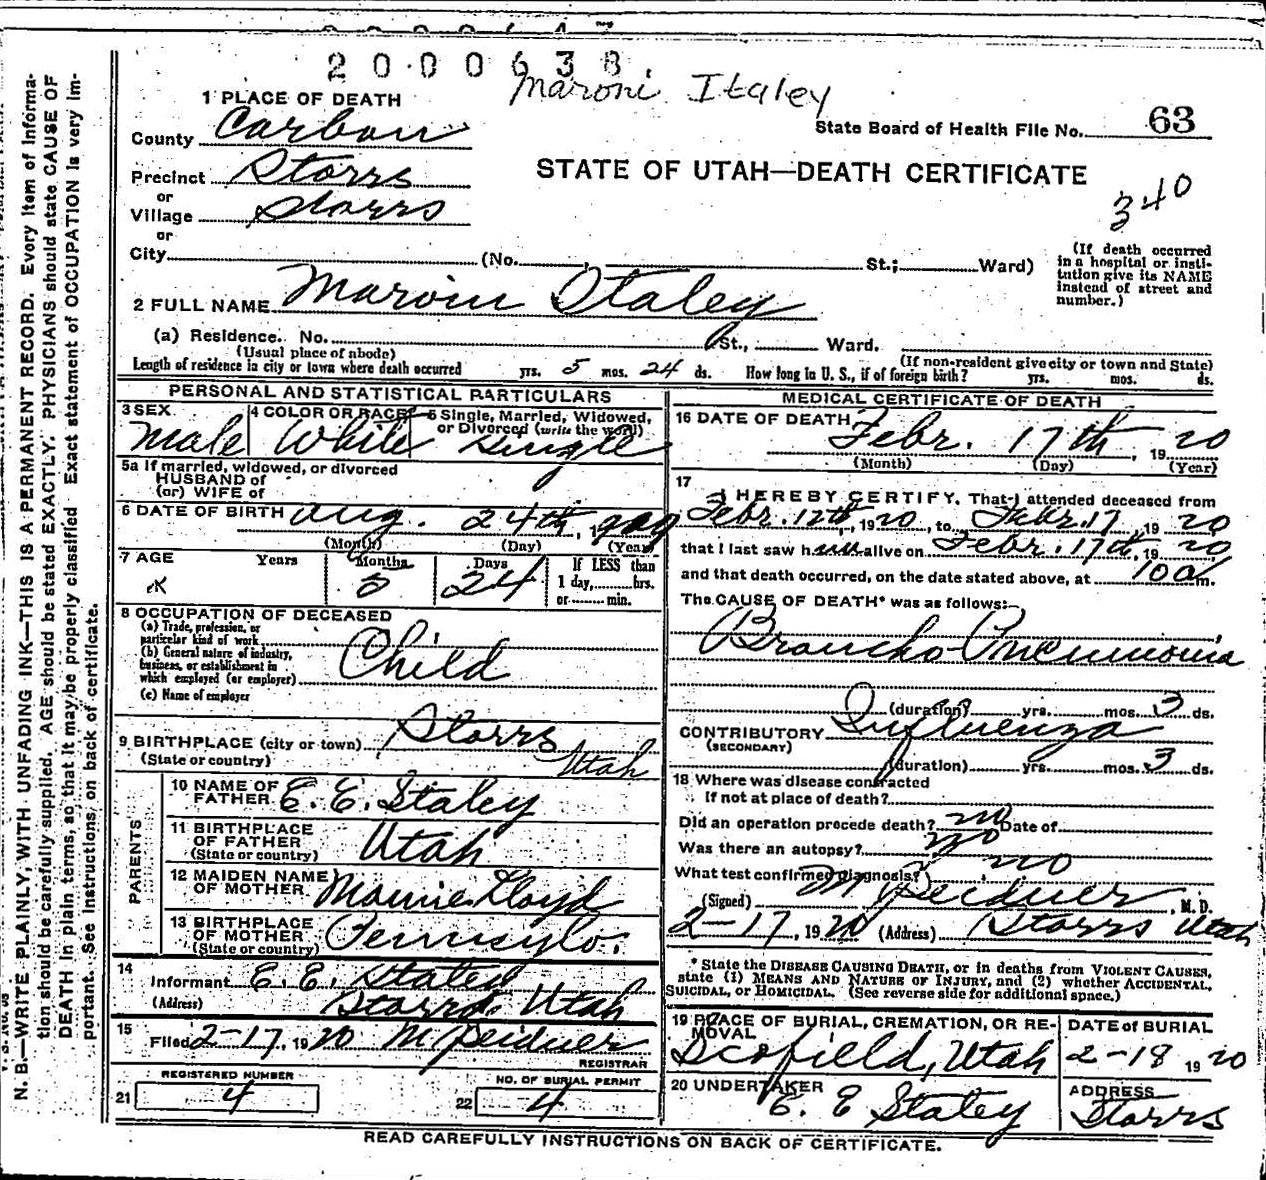 2000638.
Maroni Italey
1 PLACE OF DEATH
County Carbon
State Board of Health File No. 63
Precinct Storrs
STATE OF UTAH—DEATH CERTIFICATE
or
Village Storrs
340
or
City (No. , St.; Ward)
(If death occurred in a hospital or institution give its NAME instead of street and number.)
2 FULL NAME Marvin Staley
(a) Residence. No. St., Ward.
(Usual place of abode) (If non-resident give city or town and State)
Length of residence in city or town where death occurred yrs. 5 mos. 24 ds. How long in U. S., if of foreign birth? yrs. mos. ds.
PERSONAL AND STATISTICAL PARTICULARS
3 SEX Male
4 COLOR OR RACE White
5 Single, Married, Widowed, or Divorced (write the word) Single
5a If married, widowed, or divorced
HUSBAND of
(or) WIFE of
6 DATE OF BIRTH Aug. 24th,
(Month) (Day) (Year)
7 AGE Years Months 5 Days 24
If LESS than
1 day, hrs.
or min.
8 OCCUPATION OF DECEASED
(a) Trade, profession, or
particular kind of work
(b) General nature of industry,
business, or establishment in
which employed (or employer) Child
(c) Name of employer
9 BIRTHPLACE (city or town) Storrs
(State or country) Utah
PARENTS
10 NAME OF
FATHER E. E. Staley
11 BIRTHPLACE
OF FATHER Utah
(State or country)
12 MAIDEN NAME
OF MOTHER Mamie Lloyd
13 BIRTHPLACE
OF MOTHER Pennsylv.
(State or country)
14
Informant E. E. Staley
(Address) Storrs, Utah
15
Filed 2-17, 1920 M
REGISTRAR
21 REGISTERED NUMBER 4
22 NO. OF BURIAL PERMIT 4
MEDICAL CERTIFICATE OF DEATH
16 DATE OF DEATH Febr. 17th, 1920
(Month) (Day) (Year)
17
I HEREBY CERTIFY, That I attended deceased from
Febr. 12th, 1920, to Febr. 17, 1920
that I last saw h im alive on Febr. 17th, 1920
and that death occurred, on the date stated above, at 10 a m.
The CAUSE OF DEATH* was as follows:
Broncho Pneumonia
(duration) yrs. mos. 3 ds.
CONTRIBUTORY Influenza
(SECONDARY)
(duration) yrs. mos. 3 ds.
18 Where was disease contracted
If not at place of death?
Did an operation precede death? no Date of
Was there an autopsy? no
What test confirmed diagnosis? no
(Signed) M , M.D.
2-17, 1920 (Address) Storrs Utah
* State the DISEASE CAUSING DEATH, or in deaths from VIOLENT CAUSES,
state (1) MEANS AND NATURE OF INJURY, and (2) whether ACCIDENTAL,
SUICIDAL, or HOMICIDAL. (See reverse side for additional space.)
19 PLACE OF BURIAL, CREMATION, OR REMOVAL
Scofield, Utah
DATE of BURIAL
2-18 1920
20 UNDERTAKER
E. E Staley
ADDRESS
Storrs
READ CAREFULLY INSTRUCTIONS ON BACK OF CERTIFICATE.
N. B—WRITE PLAINLY, WITH UNFADING INK—THIS IS A PERMANENT RECORD. Every item of informa-
tion should be carefully supplied. AGE should be stated EXACTLY. PHYSICIANS should state CAUSE OF
DEATH in plain terms, so that it may be properly classified Exact statement of OCCUPATION is very im-
portant. See instructions on back of certificate.